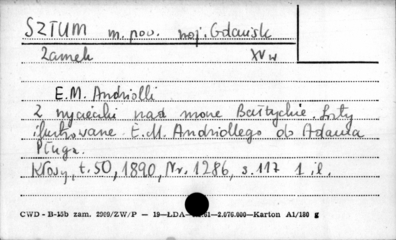 SZTUM m. pow. woj. Gdańsk
Zamek XV w
E.M. Andriolli
Z wycieczki nad morze Bałtyckie. Listy
ilustrowane E.M. Andriollego do Adama
Pługa.
Kłosy, t. 50, 1890, Nr. 1286, s. 117 1 il.
CWD - B-15b zam. 2909/ZW/P — 19—ŁDA— 61—2.076.000—Karton A1/180 g